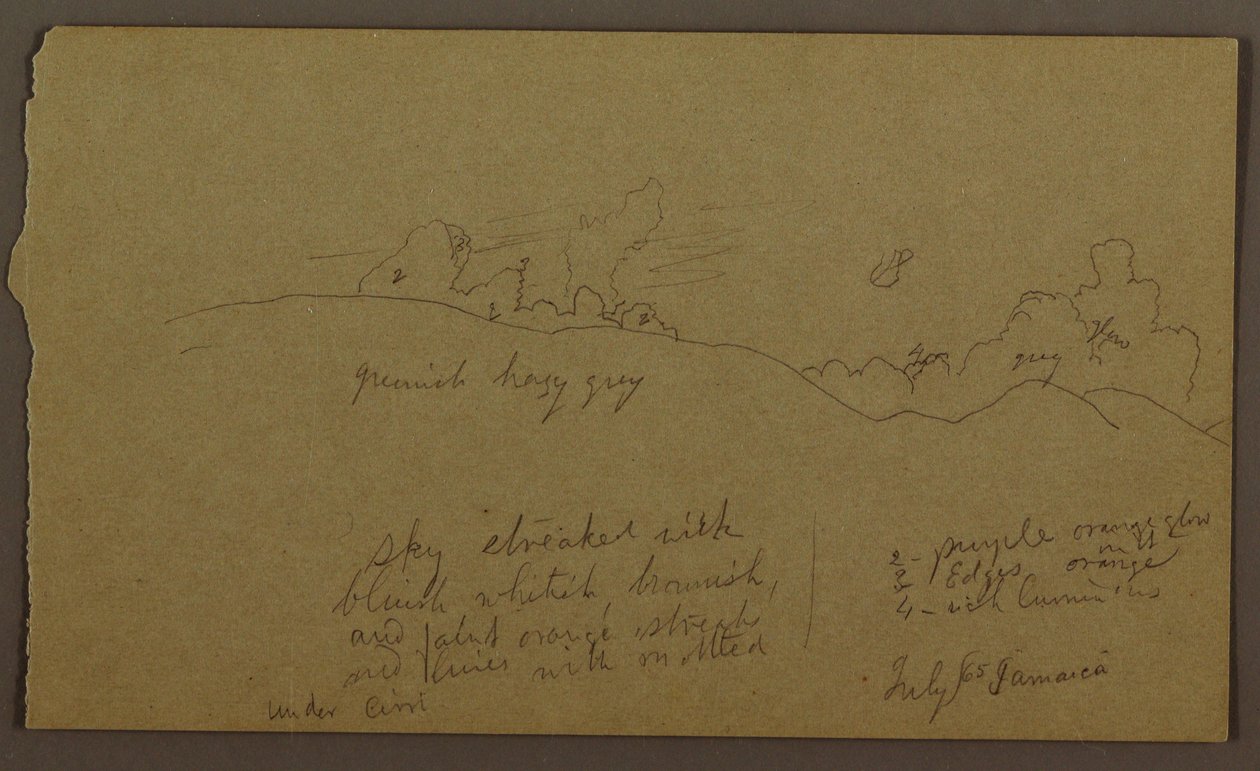 3
2
3
2
2
4
grey
glow
greenish hazy grey
sky streaked with
bluish whitish, brownish,
and faint orange streaks
and lines with mottled
under cirri
2 - purple orange glow
3 Edges orange
4 - rich luminous
July/65 Jamaica